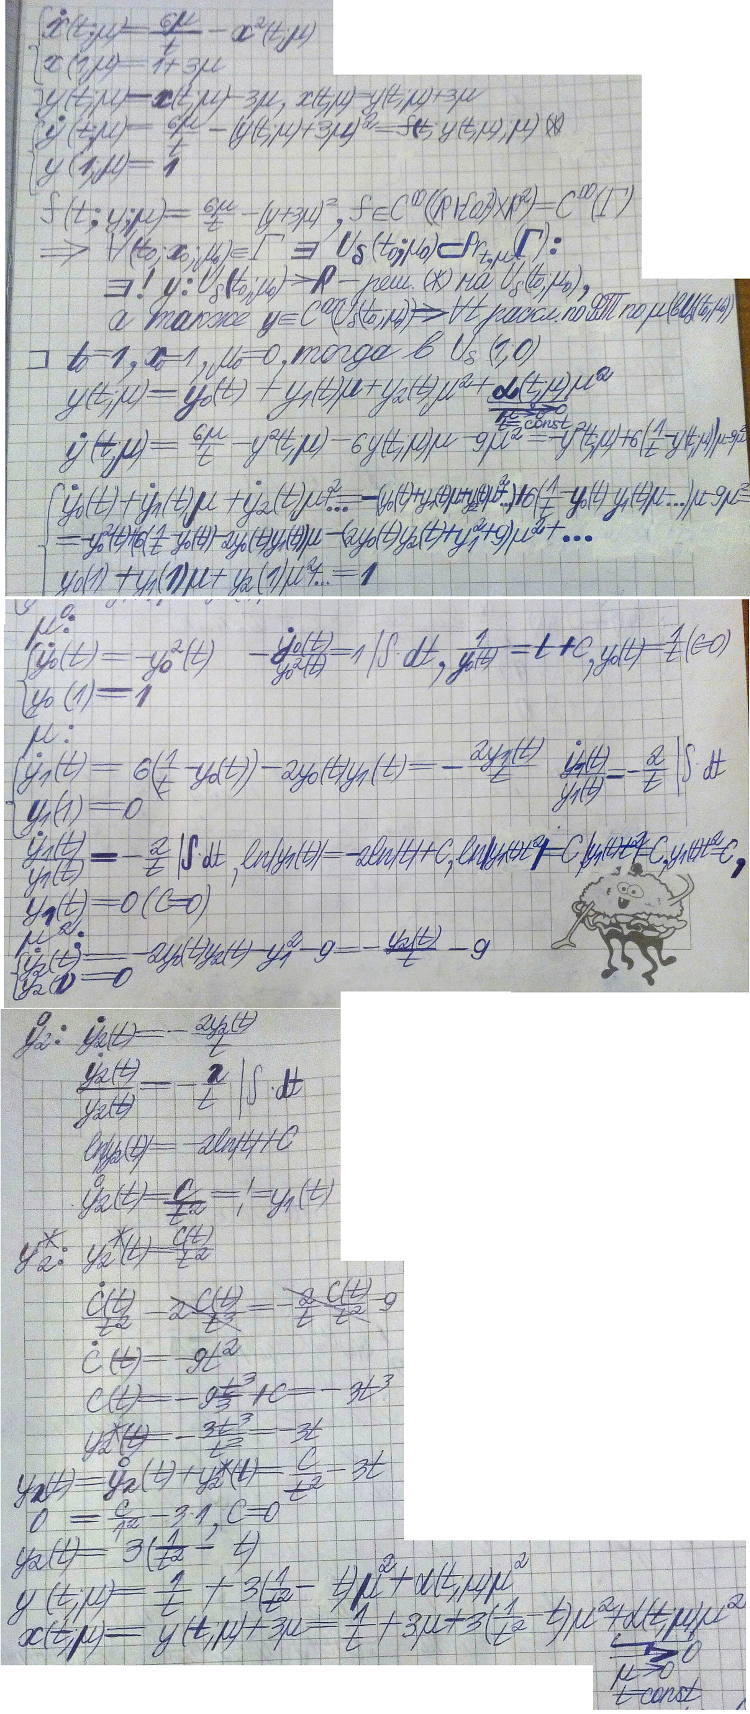 ẋ(t;μ) = 6μ/t − x²(t,μ)
x(1,μ) = 1+3μ
y(t,μ) = x(t,μ) − 3μ, x(t,μ) = y(t,μ) + 3μ
ẏ(t,μ) = 6μ/t − (y(t;μ)+3μ)² = f(t, y(t,μ), μ) (*)
y(1,μ) = 1
f(t; y;μ) = 6μ/t − (y+3μ)², f ∈ C^(∞)((R\{0})×R²) = C^(∞)(Γ)
⇒ ∀(t₀; x₀,μ₀) ∈ Γ ∃ U_δ(t₀;μ₀) ⊂ Pr_t,μ(Γ):
∃! y: U_δ(t₀,μ₀) → R − реш. (*) на U_δ(t₀,μ₀),
а также y ∈ C^(∞)(U_δ(t₀,μ₀)) ⇒ ∀t раскл. по ФТ по μ (в U_δ(t₀,μ₀))
] t₀=1, x₀=1, μ₀=0, тогда в U_δ(1,0)
y(t,μ) = y₀(t) + y₁(t)μ + y₂(t)μ² + α(t,μ)μ²
μ→0
t=const
ẏ(t,μ) = 6μ/t − y²(t,μ) − 6y(t,μ)μ − 9μ² = −y²(t,μ) + 6(1/t − y(t,μ))μ − 9μ²
ẏ₀(t) + ẏ₁(t)μ + ẏ₂(t)μ²... = −(y₀(t)+y₁(t)μ+y₂(t)μ²...)²+6(1/t − y₀(t) y₁(t)μ...)μ − 9μ²
= −y₀²(t)+(6(1/t − y₀(t)) − 2y₀(t)y₁(t))μ − (2y₀(t)y₂(t)+y₁²+9)μ²+...
y₀(1) + y₁(1)μ + y₂(1)μ²... = 1
μ⁰:
ẏ₀(t) = −y₀²(t) −ẏ₀(t)/y₀²(t) = 1 |∫·dt, 1/y₀(t) = t+C, y₀(t) = 1/t (C=0)
y₀(1) = 1
μ:
ẏ₁(t) = 6(1/t − y₀(t)) − 2y₀(t)y₁(t) = −2y₁(t)/t ẏ₁(t)/y₁(t) = −2/t |∫·dt
y₁(1) = 0
ẏ₁(t)/y₁(t) = −2/t |∫·dt, ln|y₁(t)| = −2ln|t|+C, ln|y₁(t)t²| = C, |y₁(t)t²| = C, y₁(t)t² = C,
y₁(t) = 0 (C=0)
μ²:
ẏ₂(t) = −2y₀(t)y₂(t) − y₁² − 9 = −y₂(t)/t − 9
y₂(1) = 0
ẙ₂: ẏ₂(t) = −2y₂(t)/t
ẏ₂(t)/y₂(t) = −2/t |∫·dt
ln|y₂(t)| = −2ln|t|+C
ẙ₂(t) = C/t² = ¦ = y₁(t)
y₂*: y₂*(t) = C(t)/t²
Ċ(t)/t² − 2C(t)/t³ = −2/t C(t)/t² − 9
Ċ(t) = −9t²
C(t) = −9t³/3 + C = −3t³
y₂*(t) = −3t³/t² = −3t
y₂(t) = ẙ₂(t) + y₂*(t) = C/t² − 3t
0 = C/1² − 3·1, C=0
y₂(t) = 3(1/t² − t)
y(t;μ) = 1/t + 3(1/t² − t)μ² + α(t,μ)μ²
x(t,μ) = y(t,μ) + 3μ = 1/t + 3μ + 3(1/t² − t)μ² + α(t;μ)μ²
→ 0
μ→0
t=const